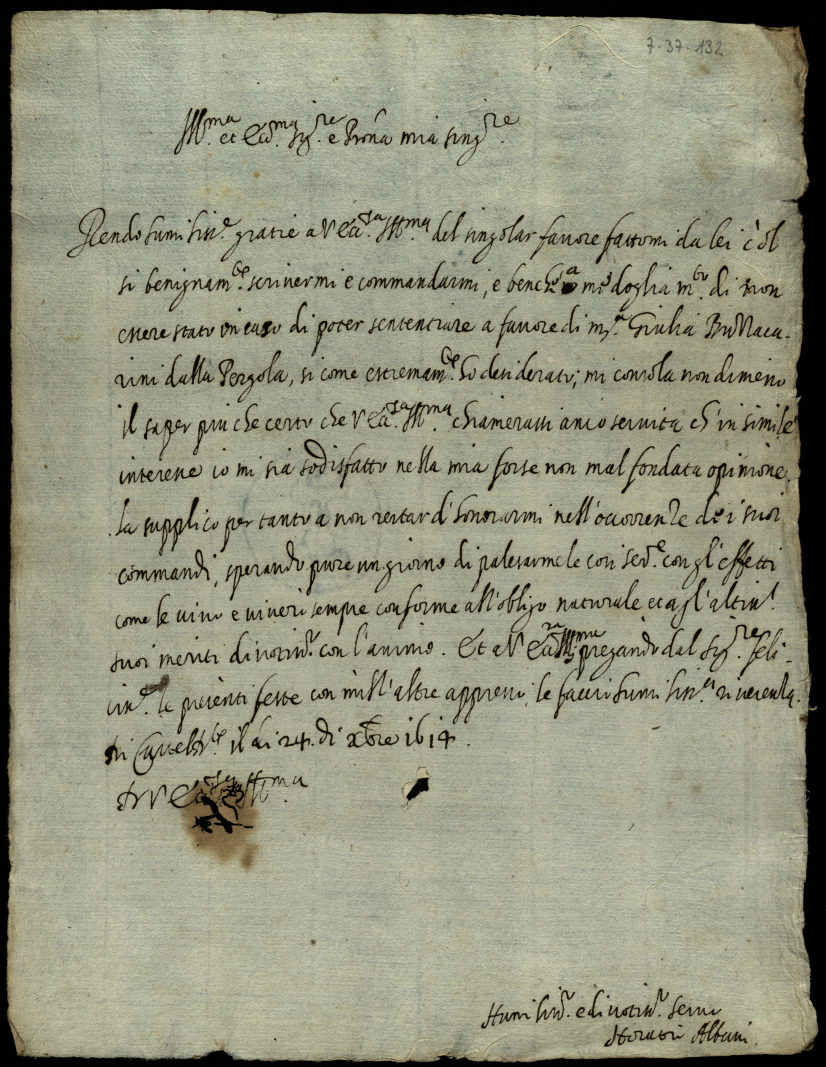 7-37-132
Ill.ma et Ecc.ma Sig.re e Pron̄a mia sing.re
Rendo humiliss.e gratie a V Ecc.za Ill.ma del singolar favore fattomi da lei c̀ol
si benignam.te scrivermi e commandarmi, e benche a me doglia m.to di non
essere stato in caso di poter sententiare a favore di m.a Giulia Bullaca-
rini dalla Pergola, si come estremam.te ho desiderato; mi consola non dimeno
il saper più che certo che V Ecc.za Ill.ma chiamerassi anco servita ch' in simile
interesse io mi sia sodisfatto nella mia forse non mal fondata opinione.
La supplico per tanto a non restar d'honorarmi nell'occorrenze de i suoi
commandi, sperando pure un giorno di palesarmele così ser.e con gl'effetti
come le vivo e viverò sempre conforme all'obligo naturale et agl'altiss.i
suoi meriti divotiss.o con l'animo. Et a V Ecc.za Ill.ma pregando dal Sig.re feli-
ciss.e le presenti feste con mill'altre appresso, le faccio humiliss.a riverenza.
Di il di 24. di Xbre 1614.
Di V Ecc.za Ill.ma
Humiliss.o e divotiss.o servo
Horatio Albani.